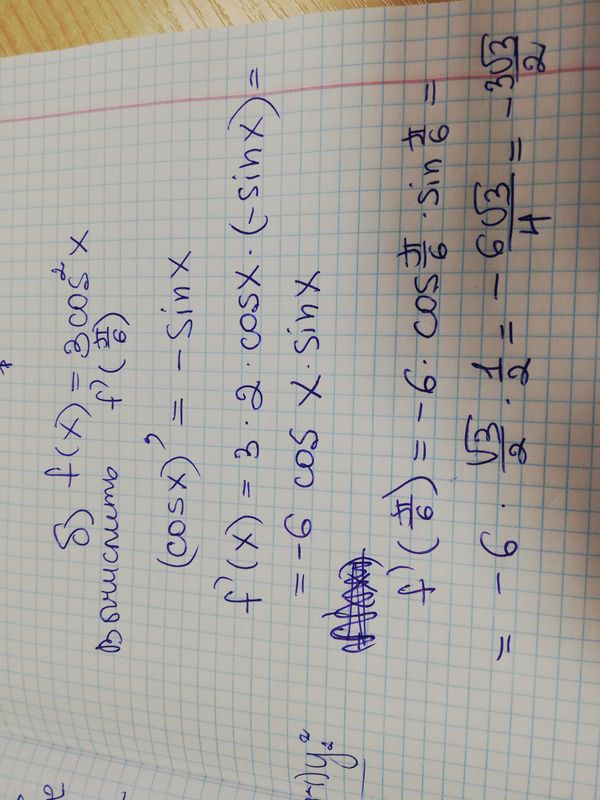 б) f(x) = 3cos²x
вычислить f'(π/6)
(cosx)' = -sinx
f'(x) = 3·2·cosx·(-sinx) =
= -6 cosx·sinx
f'(π/6) = -6·cos π/6 · sin π/6 =
= -6 · √3/2 · 1/2 = - 6√3/4 = - 3√3/2